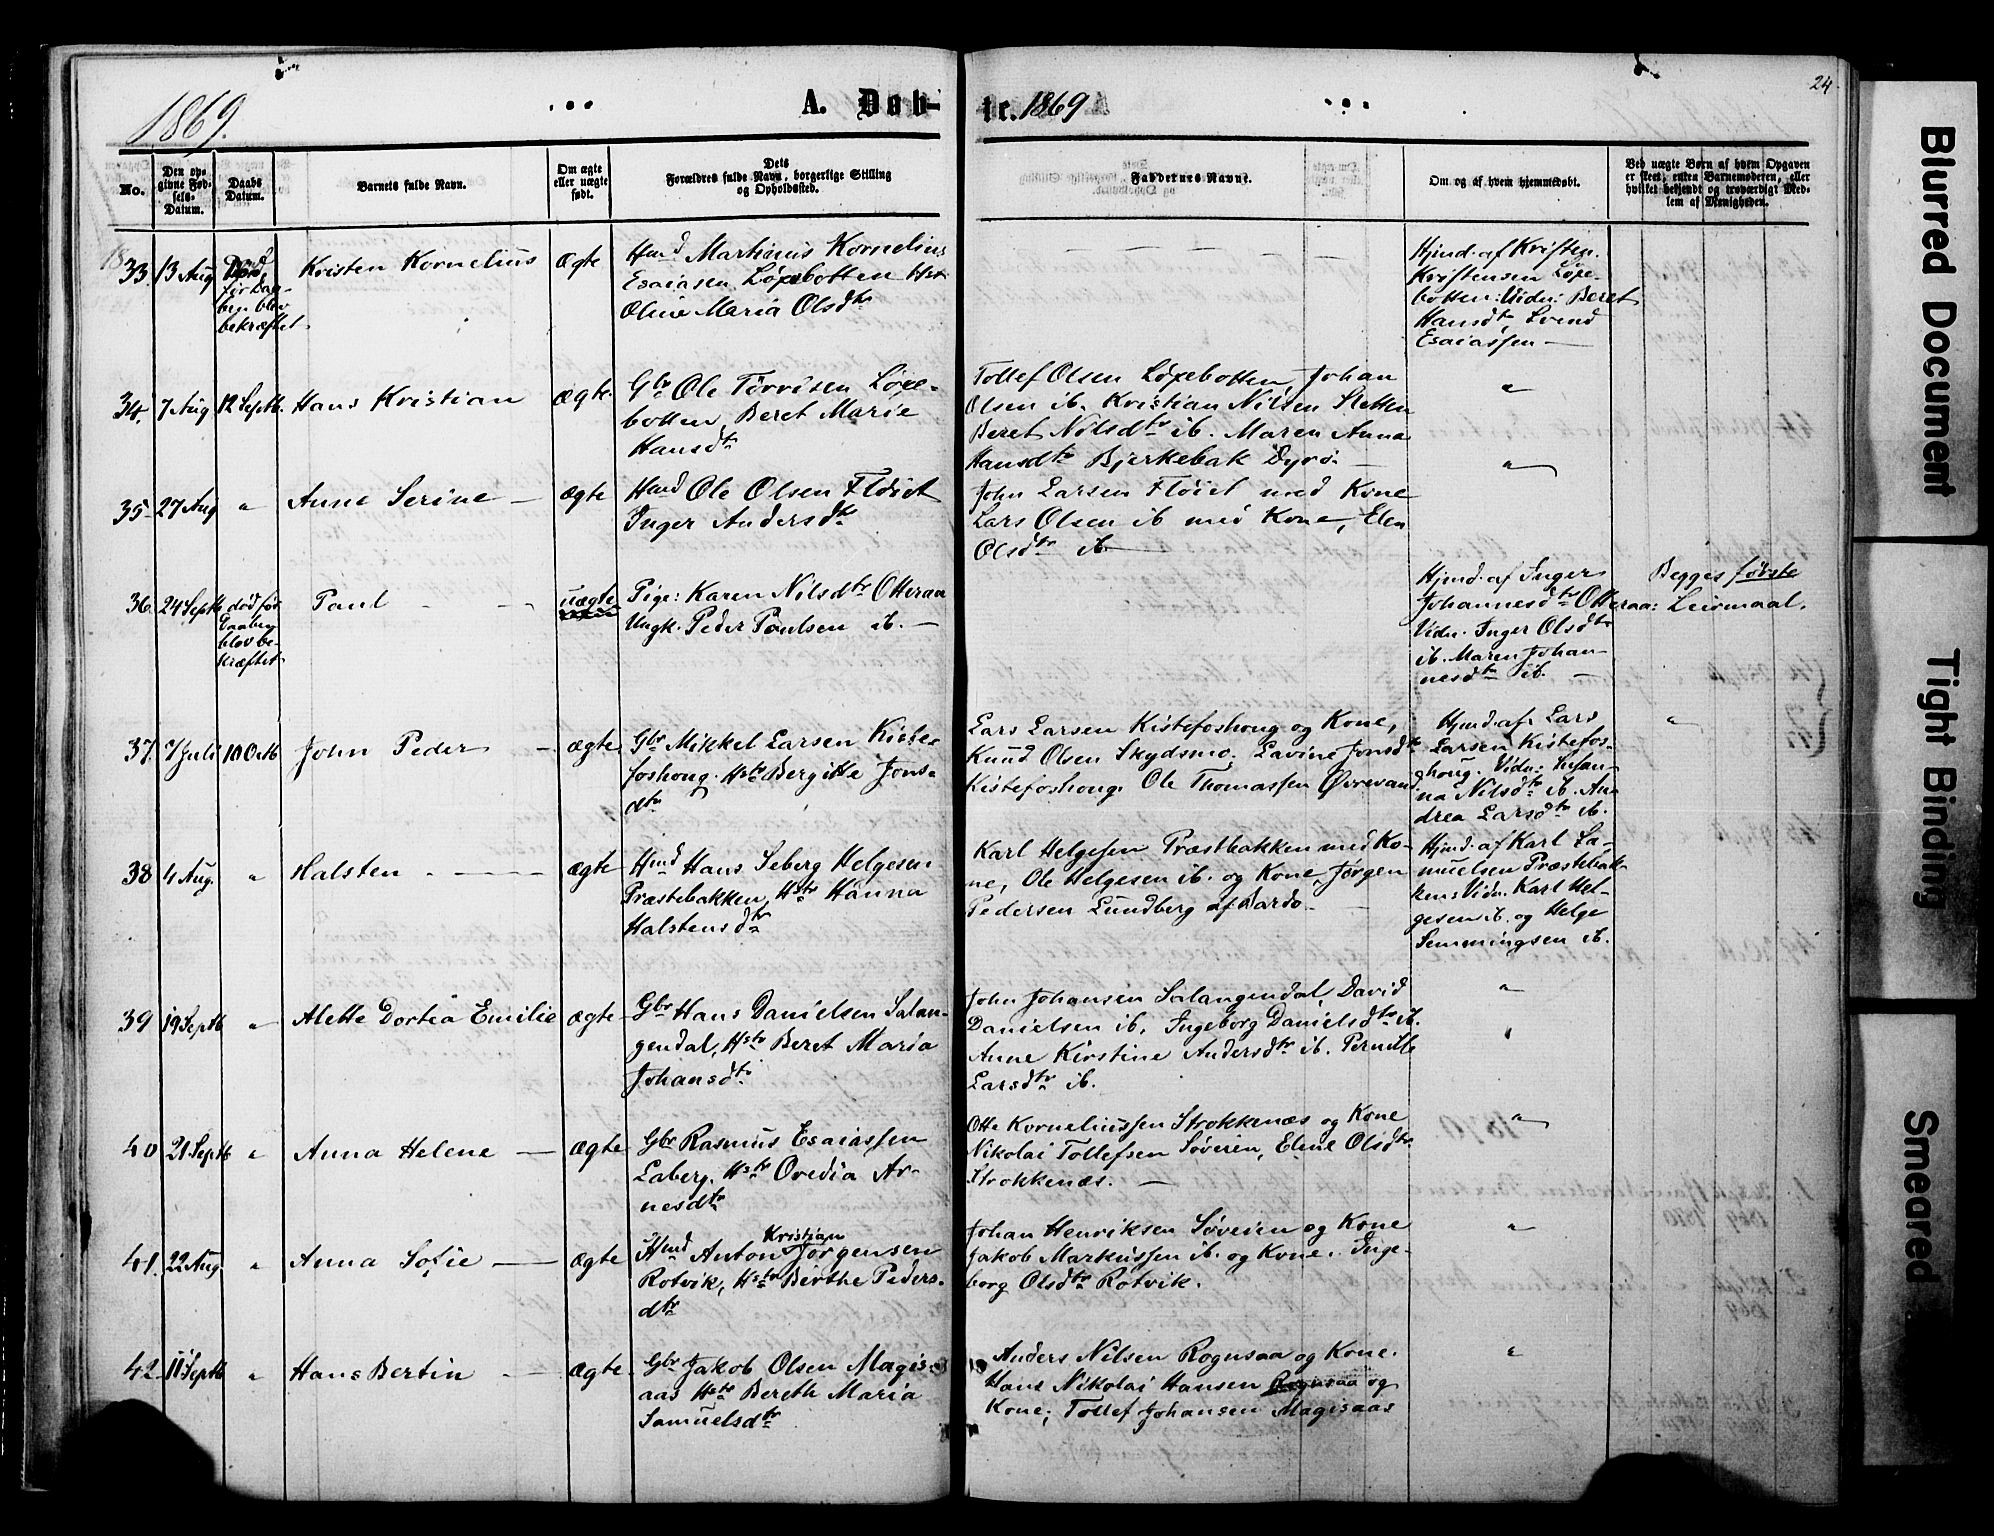 24
1869.
A. Døb-
te. 1869
No.
Den op-
givne Fød-
sels-
Datum.
Daabs
Datum.
Barnets fulde Navn.
Om ægte
eller uægte
født.
Dets
Forældres fulde Navn, borgerlige Stilling
og Opholdssted.
Faddernes Navne.
Om og af hvem hjemmedøbt.
Ved uægte Børn af hvem Opgaven
er skeet, enten Barnemoderen, eller
hvilket bekjendt og troværdigt Med-
lem af Menigheden.
33. 13 Aug
før Daa-
ben blev
bekræftet.
Kristen Kornelius
ægte
Hmd Martinus Kornelius
Esaiasen Løxebotten Hst
Oline Maria Olsdtr
Hjmd. af Kristen
Kristensen Løxe-
botten: Vidn: Beret
Hansdtr, Svend
Esaiassen —
34. 7 Aug 12 Septb. Hans Kristian ægte
Gbr Ole Tørrisen Løxe-
botten, Beret Marie
Hansdtr
Tollef Olsen Løxebotten, Johan
Olsen ib. Kristian Nilsen Sletten
Beret Nilsdtr ib. Maren Anna
Hansdtr Bjerkebak Dyrö. —
"
35. 27 Aug " Anne Serine — ægte
Hmd Ole Olsen Fløiet
Inger Andersdtr
John Larsen Fløiet med Kone
Lars Olsen ib med Kone, Elen
Olsdtr ib —
"
36. 24 Septb
død før
Daaben
blev be-
kræftet.
Paul - -
uægte
Pige: Karen Nilsdtr Otteraa
Ungk. Peder Paulsen ib. —
Hjmd. af Inger
Johannesdtr Otteraa:
Vidn. Inger Olsdtr
ib. Maren Johan-
nesdtr ib. —
Begges første
Leiermaal.
37. 7 Juli 10 Octb John Peder - ægte
Gbr Mikkel Larsen Kiste-
foshoug. Hstr Bergitte Jons-
dtr
Lars Larsen Kistefoshoug og Kone,
Knud Olsen Skydsmo. Lavine Jonsdtr
Kistefoshoug. Ole Thomassen Øvrevand
Hjmd. af Lars
Larsen Kistefos-
houg. Vidn: Susan-
na Nilsdtr ib. An-
drea Larsdtr ib.
"
38 4 Aug. " Halsten - — ægte
Hmd Hans Seberg Helgesen
Præstebakken, Hstr Hanna
Halstensdtr
Karl Helgesen Præstbakken med Ko-
ne, Ole Helgesen ib. og Kone, Jørgen
Pedersen Lundberg af Bardo —
Hjmd. af Karl Sa-
muelsen Præstebak-
ken: Vidn. Karl Hel-
gesen ib. og Helge
Semmingsen ib.
39 19 Septb " Alette Dortea Emilie ægte
Gbr Hans Danielsen Salan-
gendal, Hstr Beret Maria
Johansdtr
John Johansen Salangendal, David
Danielsen ib. Ingeborg Danielsdtr ib.
Anne Kirstine Andersdtr ib. Pernille
Larsdtr ib.
"
40 21 Septb " Anna Helene — ægte
Gbr Rasmus Esaiassen
Laberg. Hstr Ovedia Ar-
nesdtr
Otte Korneliussen Strokkenæs og Kone
Nikolai Tollefsen Søveien, Eline Olsdtr
Strokkenæs. —
"
41. 22 Aug. " Anna Sofie — ægte
Kristian
Hmd Anton Jørgensen
Rotvik, Hstr Birthe Peders-
dtr
Johan Henriksen Søveien og Kone
Jakob Markussen ib. og Kone. Inge-
borg Olsdtr Rotvik.
"
42. 11 Septb " Hans Bertin — ægte
Gbr Jakob Olsen Magis-
aas Hstr Bereth Maria
Samuelsdtr
Anders Nilsen Rognsaa og Kone.
Hans Nikolai Hansen Rognsaa og
Kone, Tollef Johansen Magisaas
"
Blurred Document
Tight Binding
Smeared